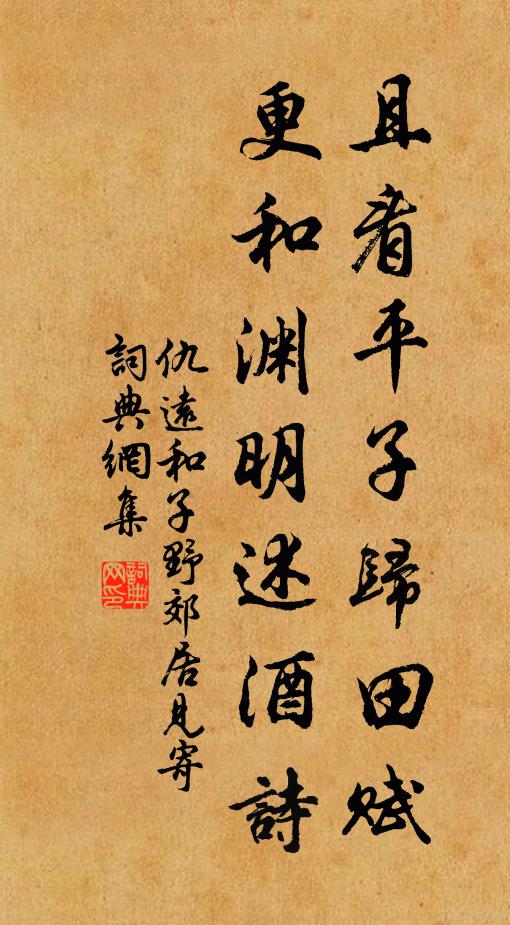 且看平子歸田賦
更和渊明述酒詩
仇遠和子野郊居見寄
詞典網集
詞典网印